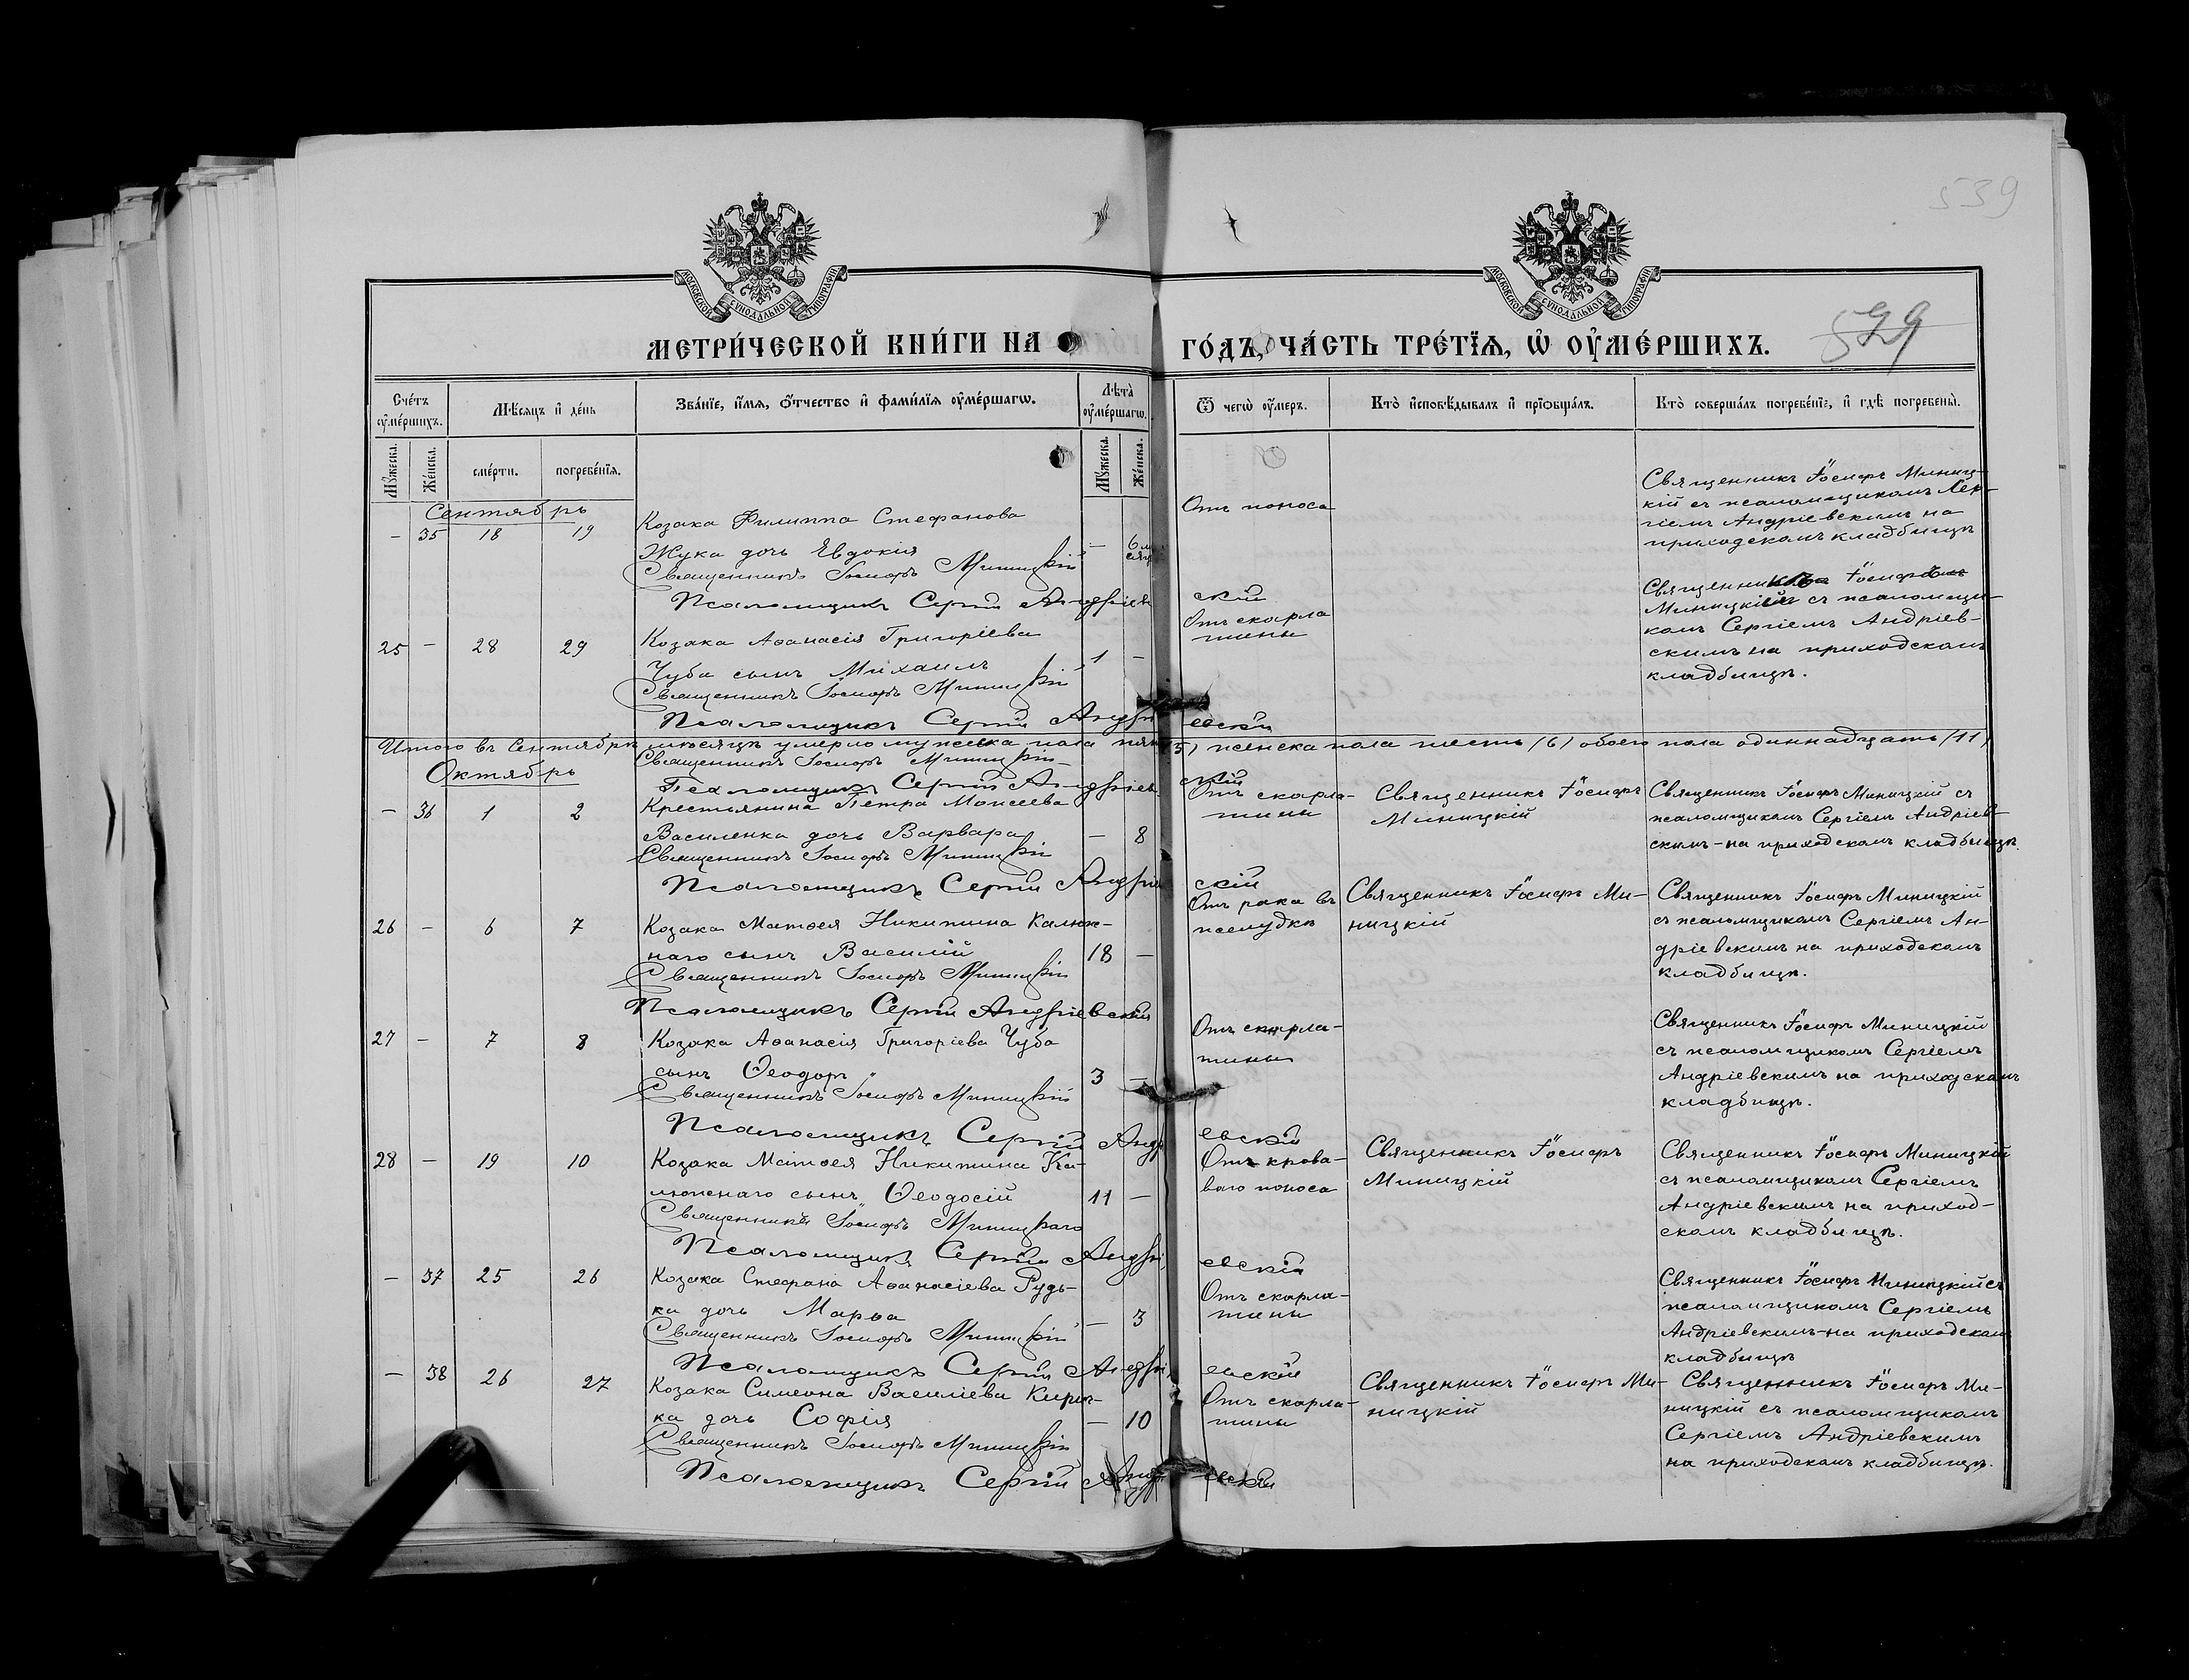 539
МОСКОВСКОЙ СУНОДАЛЬНОЙ ТИПОГРАФІИ
МОСКОВСКОЙ СУНОДАЛЬНОЙ ТИПОГРАФІИ
МЕТРИ́ЧЕСКОЙ КНИ́ГИ НА
ГО́ДЪ, ЧА́СТЬ ТРЕ́ТЇѦ, Ѿ ОУ҆МЕ́РШИХЪ.
529
Сче́тъ оу҆ме́ршихъ.
Мѣ́сѧцъ и҆ де́нь
Зва́нїе, и҆́мѧ, ѻ҆́тчество и҆ фами́лїѧ оу҆ме́ршагѡ.
Лѣ̑та̀ оу҆ме́ршагѡ.
Ѿ чегѡ̀ оу҆́меръ.
Кто̀ и҆сповѣ́дывалъ и҆ прїѡбща́лъ.
Кто̀ соверша́лъ погребе́нїе, и҆ гдѣ̀ погребены̀.
Мꙋ́жеска.
Же́нска.
сме́рти.
погребе́нїѧ.
Мꙋ́жеска.
Же́нска.
Сентябрь
– 35 18 19
Козака Филиппа Стефанова
Жука дочь Евдокія
– 6 мѣсяц
Священникъ Іосифъ Миницкій
Псаломщикъ Сергій Андріевскій
Отъ поноса
Священникъ Іосифъ Миниц-
кій съ псаломщикомъ Сер-
гіемъ Андріевскимъ на
приходскомъ кладбищѣ
25 – 28 29
Козака Аѳанасія Григоріева
Чуба сынъ Михаилъ
1 –
Священникъ Іосифъ Миницкій
Псаломщикъ Сергій Андріевскій
Отъ скарла
тины
Священникъ Іосифъ
Миницкій съ псаломщи-
комъ Сергіемъ Андріев-
скимъ на приходскомъ
кладбищѣ.
Итого въ Сентябрѣ мѣсяцѣ умерло мужеска пола пять (5) женска пола шесть (6) обоего пола одиннадцать (11)
Священникъ Іосифъ Миницкій
Псаломщикъ Сергій Андріевскій
Октябрь
– 36 1 2
Крестьянина Петра Моисеева
Василенка дочь Варвара
– 8
Священникъ Іосифъ Миницкій
Псаломщикъ Сергій Андріевскій
Отъ скарла-
тины
Священникъ Іосифъ
Миницкій
Священникъ Іосифъ Миницкій съ
псаломщикомъ Сергіемъ Андріев-
скимъ-на приходскомъ кладбищѣ.
26 – 6 7
Козака Матѳея Никитина Калюж-
наго сынъ Василій
18 –
Священникъ Іосифъ Миницкій
Псаломщикъ Сергій Андріевскій
Отъ рака въ
желудкѣ
Священникъ Іосифъ Ми-
ницкій
Священникъ Іосифъ Миницкій
съ псаломщикомъ Сергіемъ Ан-
дріевскимъ на приходскомъ
кладбищѣ.
27 – 7 8
Козака Аѳанасія Григоріева Чуба
сынъ Ѳеодоръ
3 –
Священникъ Іосифъ Миницкій
Псаломщикъ Сергій Андріевскій
Отъ скарла-
тины
Священникъ Іосифъ Миницкій
съ псаломщикомъ Сергіемъ
Андріевскимъ на приходскомъ
кладбищѣ.
28 – 19 10
Козака Матѳея Никитина Ка-
люжнаго сынъ Ѳеодосій
11 –
Священникъ Іосифъ Миницкаго
Псаломщикъ Сергій Андріевскій
Отъ крова-
ваго поноса
Священникъ Іосифъ
Миницкій
Священникъ Іосифъ Миницкій
съ псаломщикомъ Сергіемъ
Андріевскимъ на приход-
скомъ кладбищѣ.
– 37 25 26
Козака Стефана Аѳанасіева Рудь-
ка дочь Марѳа
– 3
Священникъ Іосифъ Миницкій
Псаломщикъ Сергій Андріевскій
Отъ скарла-
тины
Священникъ Іосифъ Миницкій съ
псаломщикомъ Сергіемъ
Андріевскимъ-на приходскомъ
кладбищѣ
– 38 26 27
Козака Симеона Василіева
ка дочь Софія
– 10
Священникъ Іосифъ Миницкій
Псаломщикъ Сергій Андріевскій
Отъ скарла-
тины
Священникъ Іосифъ Ми-
ницкій
Священникъ Іосифъ Ми-
ницкій съ псаломщикомъ
Сергіемъ Андріевскимъ
на приходскомъ кладбищѣ.